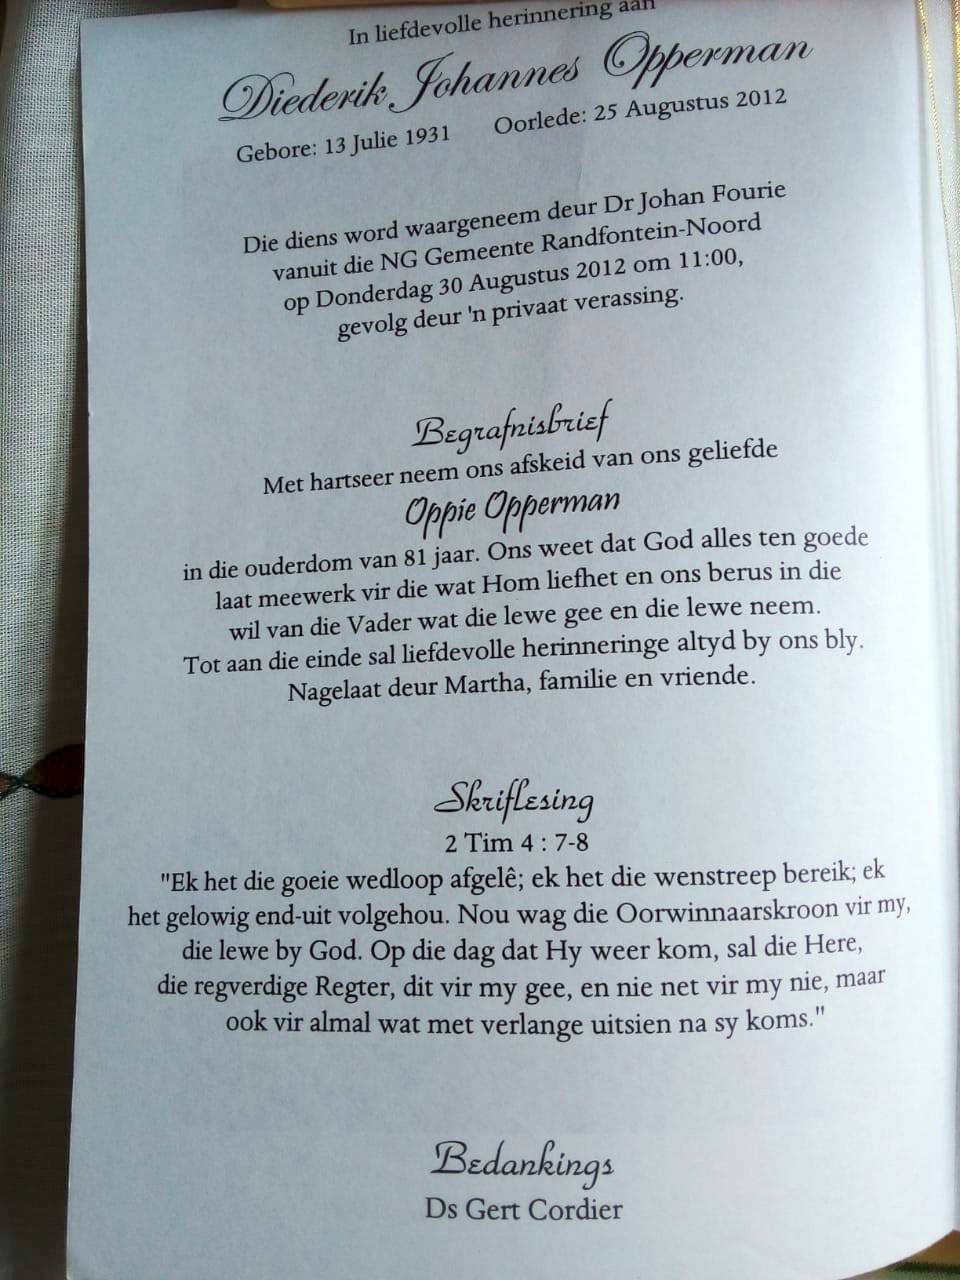 In liefdevolle herinnering aan
Diederik Johannes Opperman
Gebore: 13 Julie 1931 Oorlede: 25 Augustus 2012
Die diens word waargeneem deur Dr Johan Fourie
vanuit die NG Gemeente Randfontein-Noord
op Donderdag 30 Augustus 2012 om 11:00,
gevolg deur 'n privaat verassing.
Begrafnisbrief
Met hartseer neem ons afskeid van ons geliefde
Oppie Opperman
in die ouderdom van 81 jaar. Ons weet dat God alles ten goede
laat meewerk vir die wat Hom liefhet en ons berus in die
wil van die Vader wat die lewe gee en die lewe neem.
Tot aan die einde sal liefdevolle herinneringe altyd by ons bly.
Nagelaat deur Martha, familie en vriende.
Skriflesing
2 Tim 4 : 7-8
"Ek het die goeie wedloop afgelê; ek het die wenstreep bereik; ek
het gelowig end-uit volgehou. Nou wag die Oorwinnaarskroon vir my,
die lewe by God. Op die dag dat Hy weer kom, sal die Here,
die regverdige Regter, dit vir my gee, en nie net vir my nie, maar
ook vir almal wat met verlange uitsien na sy koms."
Bedankings
Ds Gert Cordier